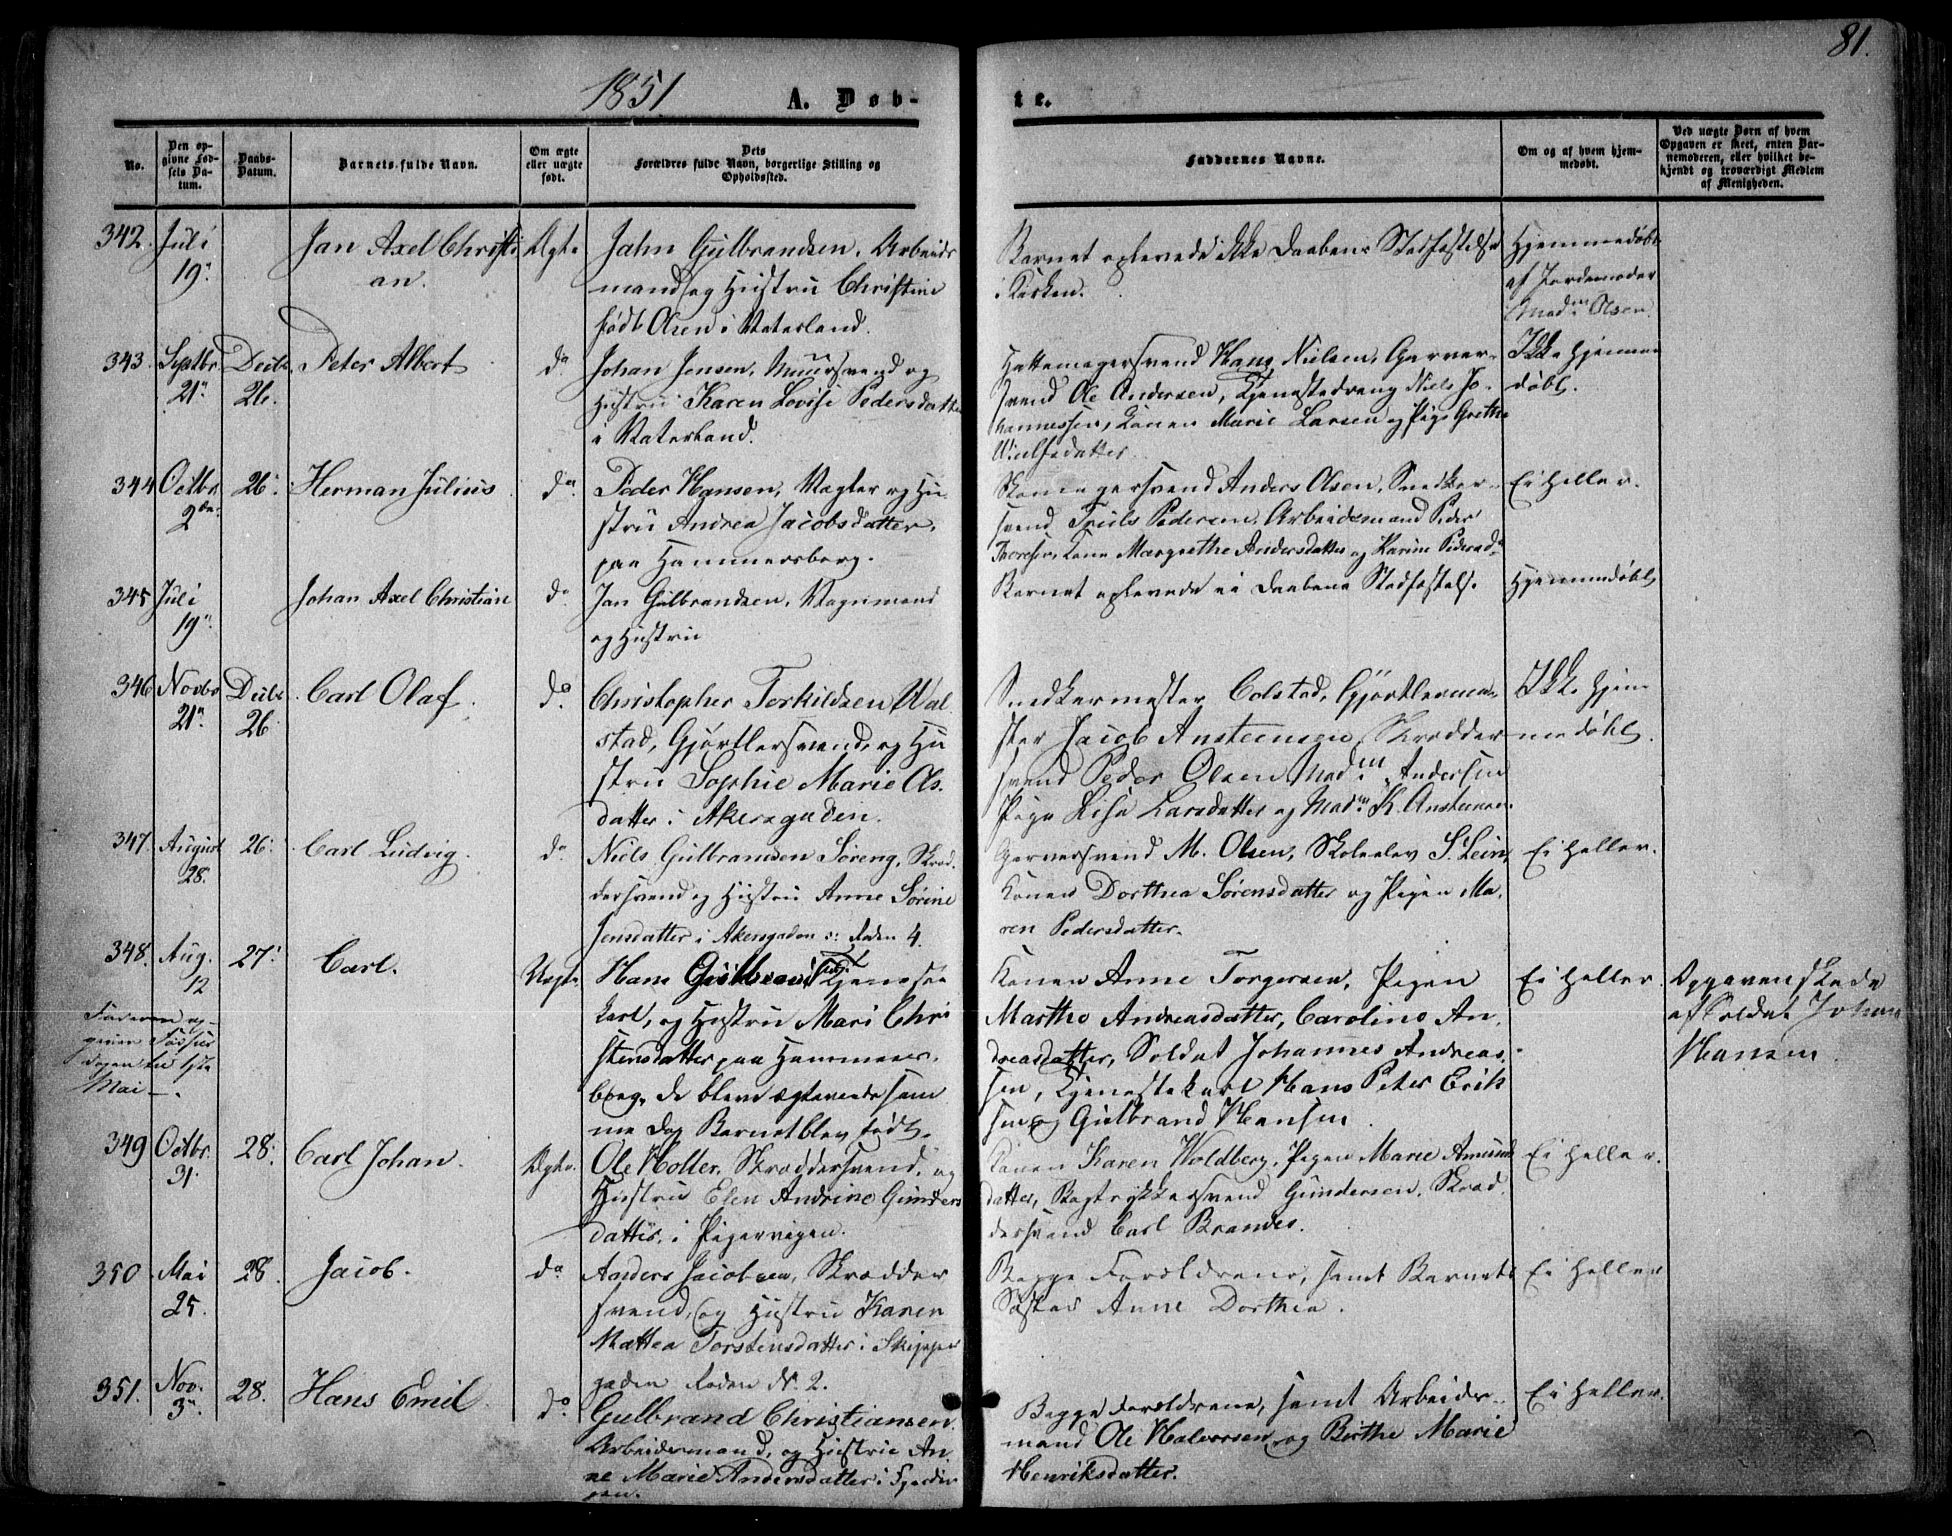 81.
1851
A. Døb-
te.
No.
Den op-
givne Fød-
sels Da-
tum.
Daabs-
Datum.
Barnets fulde Navn.
Om ægte
eller uægte
født.
Dets
Forældres fulde Navn, borgerlige Stilling og
Opholdssted.
Faddernes Navne.
Om og af hvem hjem-
medøbt.
Ved uægte Børn af hvem
Opgaven er skeet, enten Bar-
nemoderen, eller hvilket be-
kjendt og troværdigt Medlem
af Menigheden.
342.
Juli
19.
Jan Axel Christi
an.
Ægte
Jahn Gulbrandsen, Arbeids
mand og Hustru Christine
født Olsen i Vaterland.
Barnet oplevede ikke Daabens Stadfæstelse
i Kirken.
Hjemmedøbt
af Jordemoder
Madm Olsen.
343.
Septbr.
21.
Decbr
26.
Peter Albert
do
Johan Jensen, Muursvend og
Hustru Karen Lovise Pedersdatter
i Vaterland.
Hattemagersvend Hans Nielsen, Garver-
svend Ole Andersen, Tjenestedreng Niels Jo-
hannessen, Konen Marie Larsen og Pige Grethe
Ikke hjemme
døbt.
344
Octbr.
2den
26.
Herman Julius
do
Peder Hansen, Vægter og Hu-
stru Andrea Jacobsdatter,
paa Hammersborg.
Skomagersvend Anders Olsen, Snedker-
svend Truls Pedersen, Arbeidsmand Peder
Thoresen, Kone Margrethe Andersdatter og Karine Pedersd.
Ei heller.
345
Juli
19.
Johan Axel Christian
do
Jan Gulbrandsen, Vognmand
og Hustru
Barnet oplevede ei Daabens Stadfæstelse
Hjemmedøbt
346
Novbr
21.
Decbr
26
Carl Olaf.
do.
Christopher Torkildsen Wal
stad, Gjørtlersvend, og Hu
stru Sophie Marie Ols-
datter i Akersgaden.
Snedkermester Colstad, Gjørtlerme-
ster Jacob Ansteensen, Skrædder
svend Peder Olsen Madm. Andersen
Pige Lise Larsdatter og Madm K. Ansteensen.
Ikke hjem
medøbt.
347.
August
28.
26.
Carl Ludvig.
do
Niels Gulbransen Søreng, Skræd-
dersvend og Hustru Anne Sørine
Jensdatter i Akersgaden Roden 4.
Garversvend M. Olsen, Skoleelev S. Lein,
Konen Dorthea Sørensdatter og Pigen Ma-
ren Pedersdatter.
Ei heller.
348.
Aug.
12
27.
Carl.
Uægte
Hans Gulbrandsen, Tjeneste
karl, og Hustru Mari Chri
stensdatter paa Hammers-
borg, de bleve ægteviede sam
me Dag Barnet blev født.
Konen Anne Torgersen, Pigen
Marthe Andreasdatter, Caroline An-
dreasdatter, Soldat Johannes Andreas-
sen, Tjenestekarl Hans Peter Erik
sen og Gulbrand Hansen
Ei heller.
Opgaven skede
af Soldat Johan
Hansen
Faderen op-
giver Fødsels
dagen til 1ste
Mai
349
Octbr.
31.
28.
Carl Johan.
Ægte.
Ole Holter, Skræddersvend, og
Hustru Elen Andrine Gunders
datter, i Pipervigen.
Konen Karen Woldberg, Pigen Marie Amund
datter, Bogtrykkersvend Gundersen, Skræd
dersvend Carl Brandes.
Ei heller.
350
Mai
25.
28.
Jacob.
do
Anders Jacobsen, Skrædder
svend, og Hustru Karen
Mattea Torstensdatter i Skipper
gaden Roden No. 2.
Begge Forældrene, samt Barnets
Søster Anne Dorthea.
Ei heller
351.
Nov.
3.
28.
Hans Emil.
do
Gulbrand Christiansen
Arbeidsmand, og Hustru An-
ne Marie Andersdatter i Fjerdin
gen.
Begge Forældrene, samt Arbeids-
mand Ole Halvorsen, og Birthe Marie
Henriksdatter.
Ei heller.